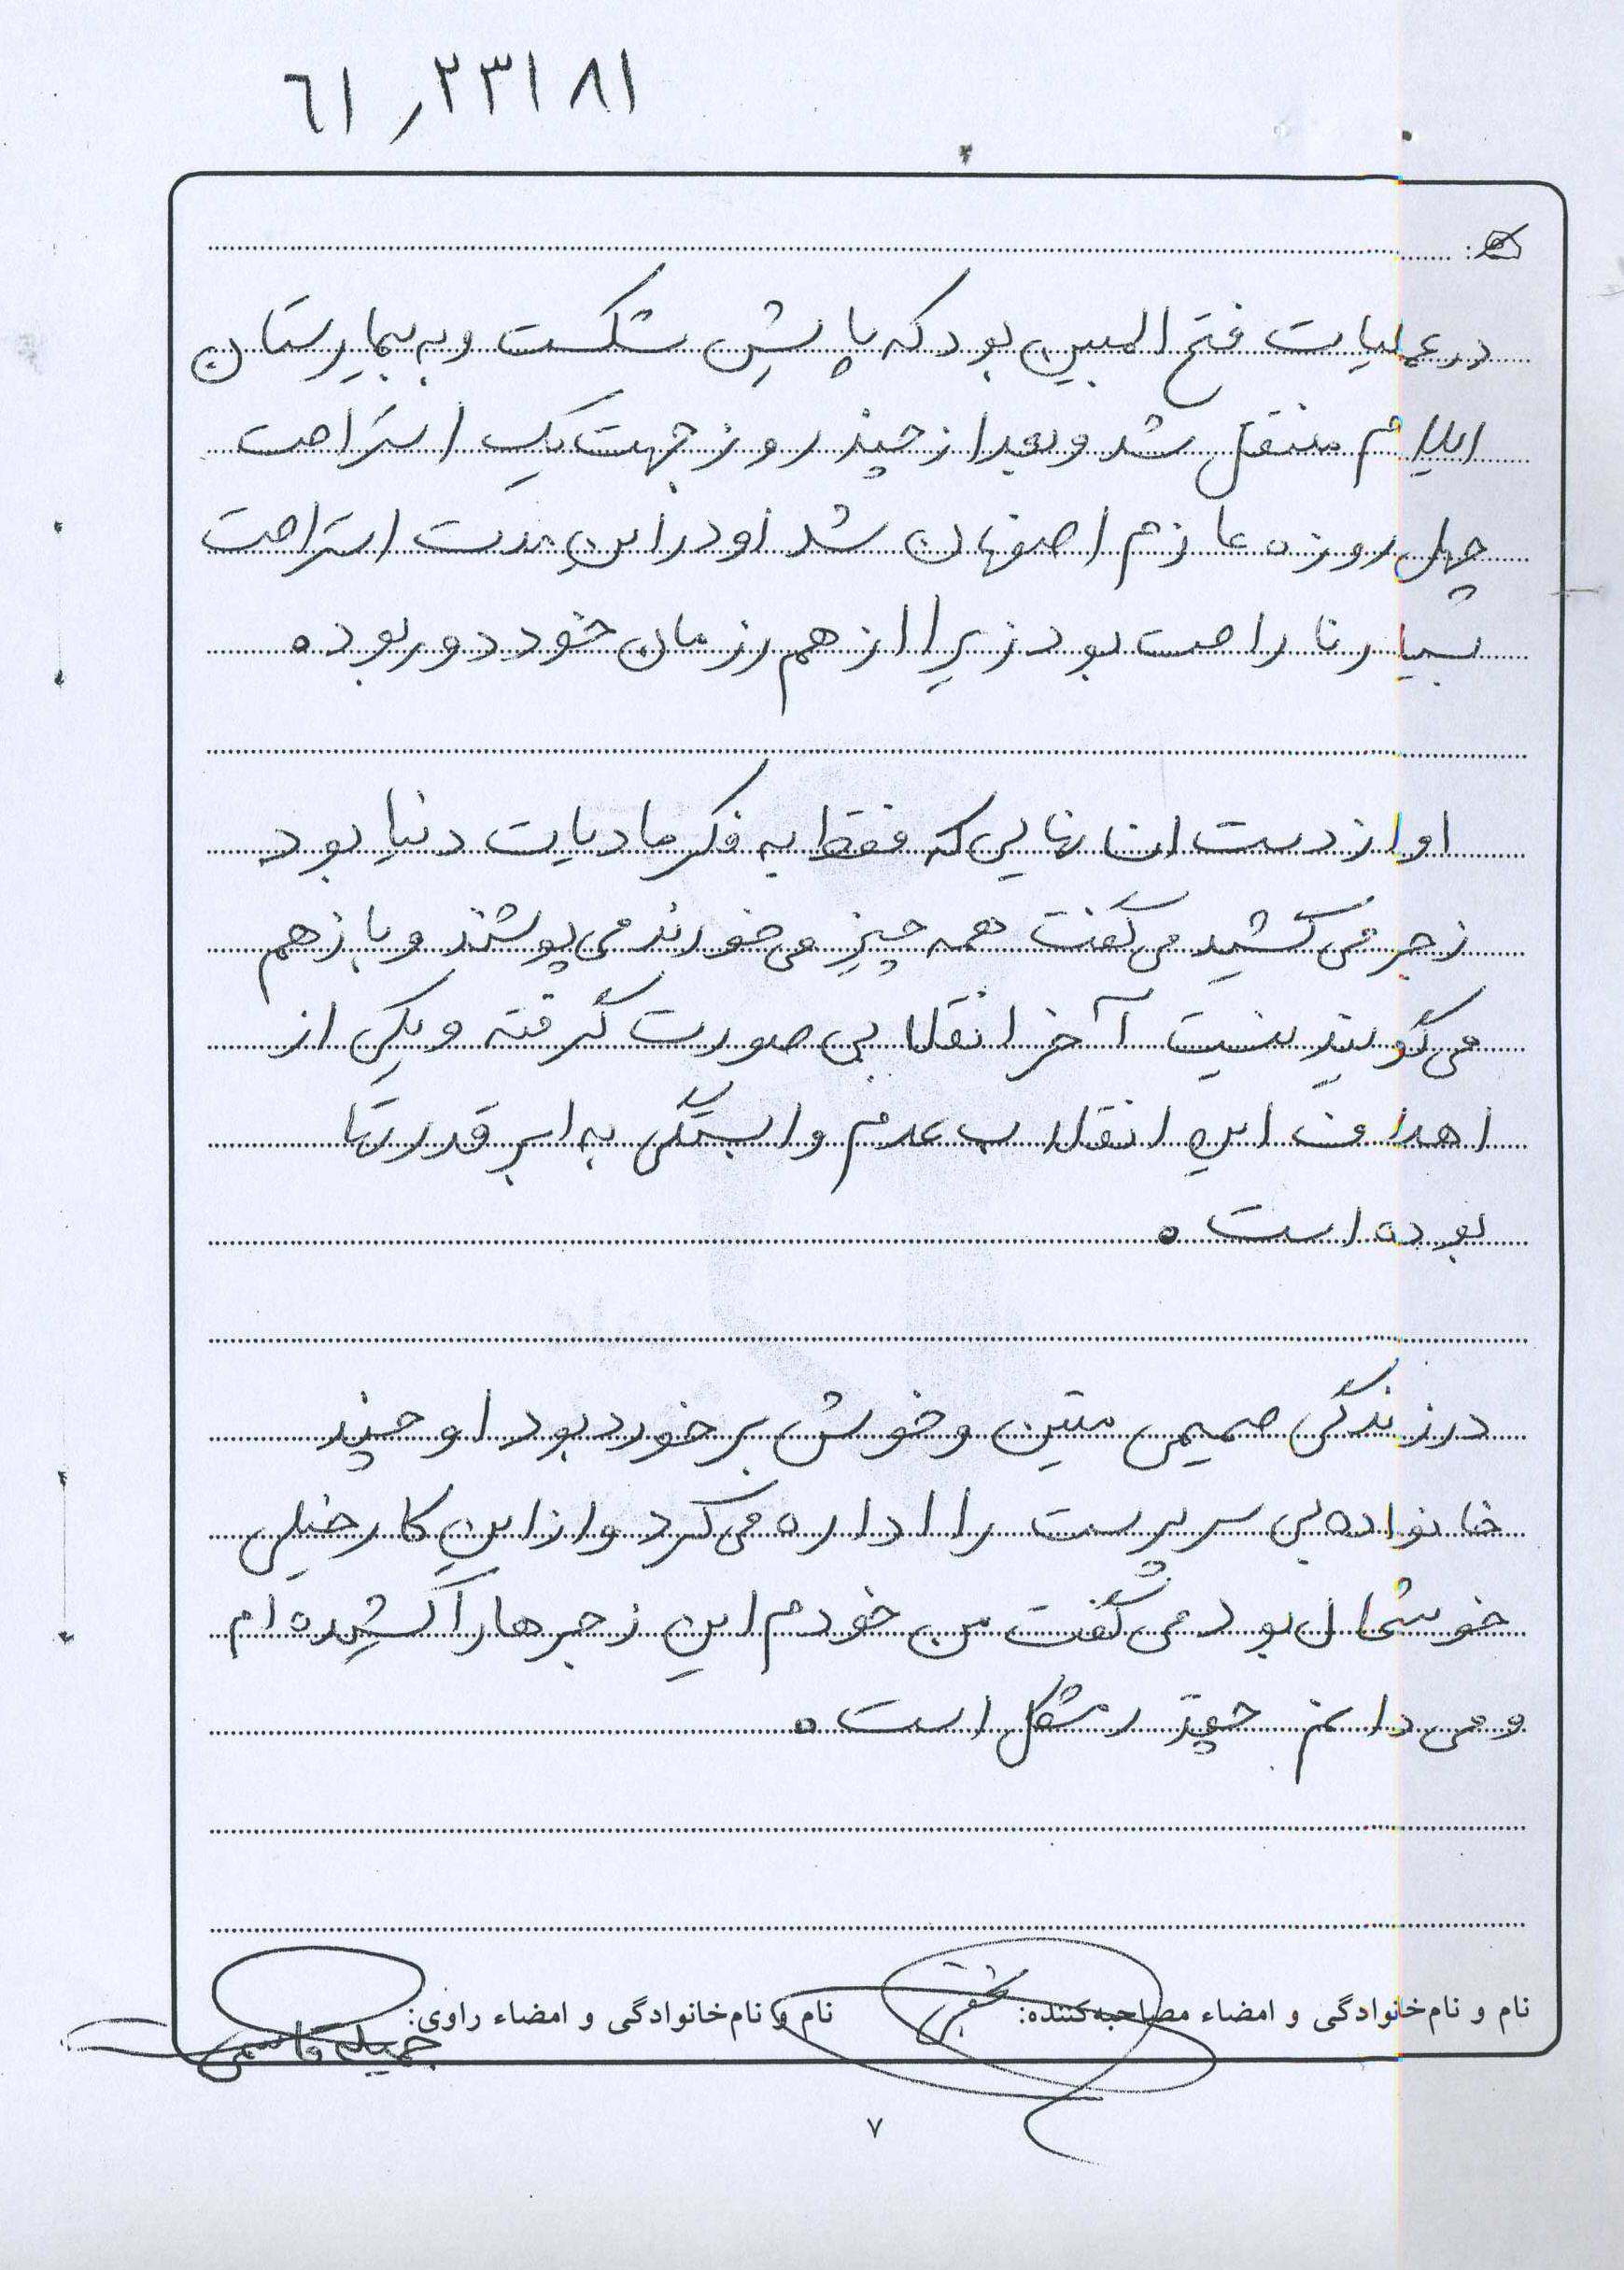 ٦١ ر ٢٣١٨١
در عملیات فتح المبین بود که پایش شکست و به بیمارستان
ایلام منتقل شد و بعد از چند روز جهت یک استراحت
چهل روزه عازم اصفهان شد او در این مدت استراحت
بسیار ناراحت بود زیرا از هم رزمان خود دور بود.
او از دست انسانهایی که فقط به فکر مادیات دنیا بود
زجر می کشید می گفت همه چیز می خورند می پوشند و باز هم
می گویند نیست آخر انقلابی صورت گرفته و یکی از
اهداف این انقلاب عدم وابستگی به ابر قدرتها
بوده است.
در زندگی صمیمی متین و خوش برخورد بود او چند
خانواده بی سرپرست را اداره می کرد و از این کار خیلی
خوشحال بود می گفت من خودم این زجرها را کشیده ام
و می دانم چقدر مشکل است.
نام و نام‌خانوادگی و امضاء مصاحبه‌کننده:
نام و نام‌خانوادگی و امضاء راوی:
جمیله قاسمی
٧